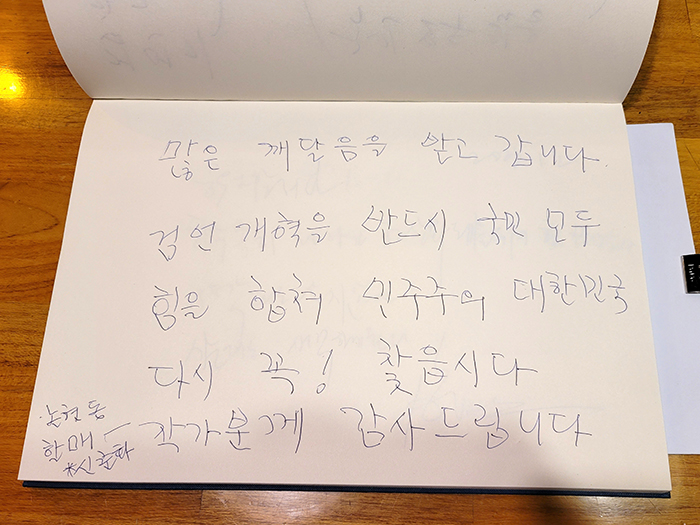 많은 깨달음을 안고 갑니다.
검언 개혁을 반드시 국민 모두
힘을 합쳐 민주주의 대한민국
다시 꼭! 찾읍시다
작가분께 감사드립니다
논현동
할매